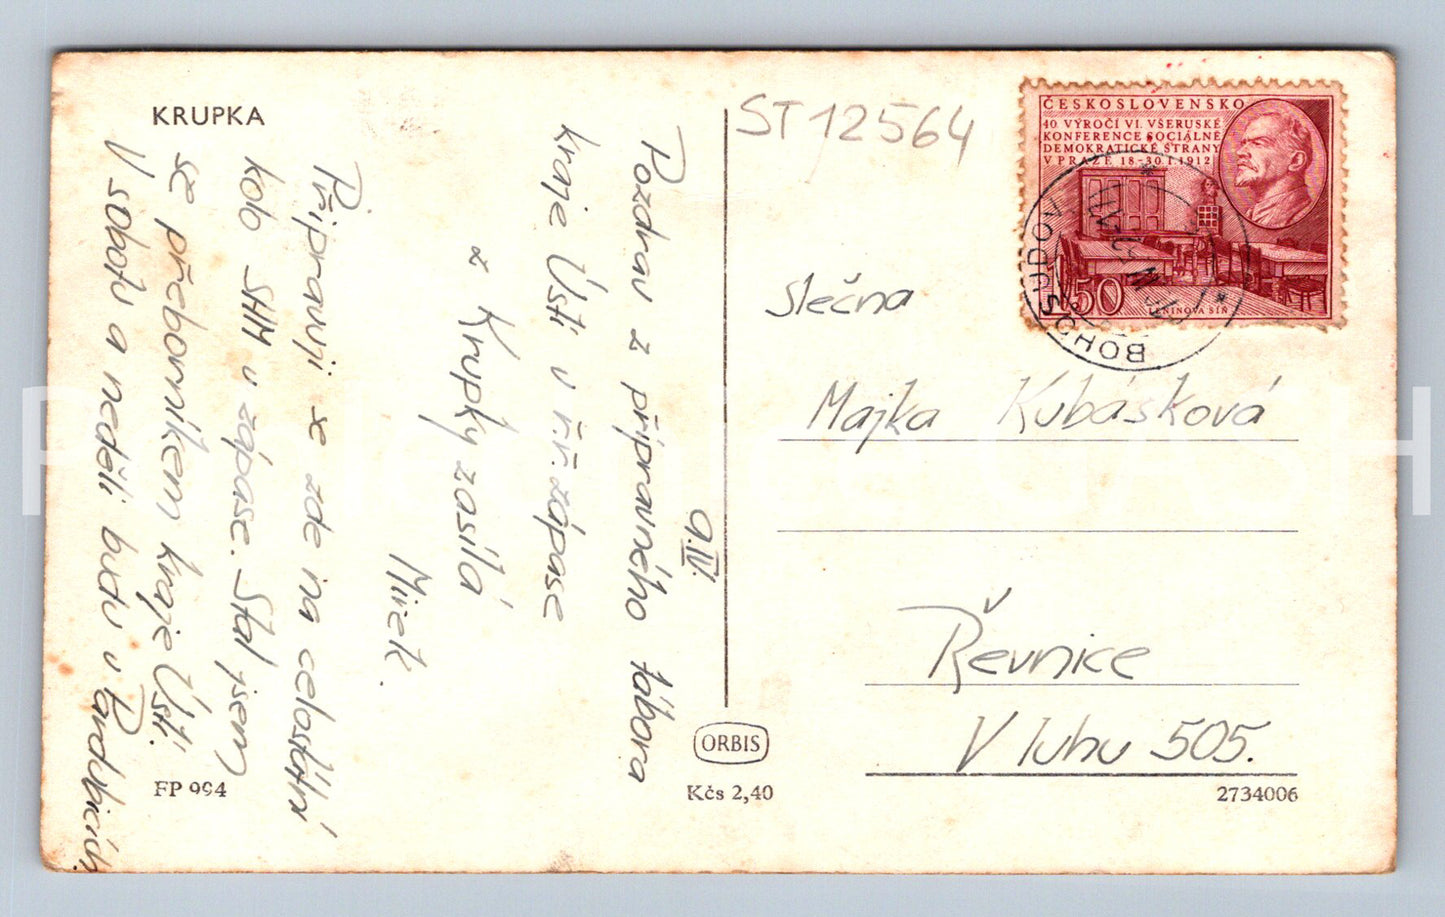 KRUPKA
9.IV.
Pozdrav z přípravného tábora
kraje Ústí v ř.ř. zápase
z Krupky zasílá
Mirek.
Připravuji se zde na celostátní
kolo SHM v zápase. Stal jsem
se přeborníkem kraje Ústí.
V sobotu a neděli budu v Pardubicích
FP 994
ORBIS
Kčs 2,40
ST 12564
ČESKOSLOVENSKO
40. VÝROČÍ VI. VŠERUSKÉ
KONFERENCE SOCIÁLNĚ
DEMOKRATICKÉ STRANY
V PRAZE 18-30.I.1912
1.50
LENINOVA SÍŇ
BOHOSUDOV
Slečna
Majka Kubásková
Řevnice
V luhu 505.
2734006